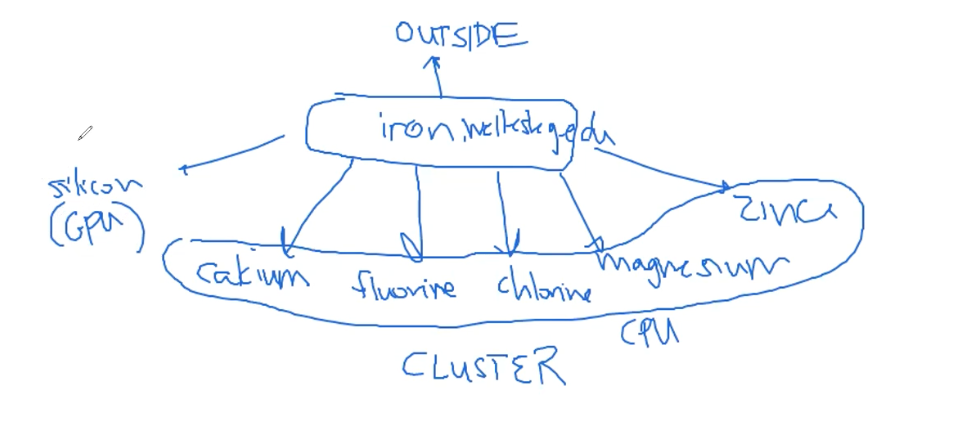 OUTSIDE
iron.wellesley.edu
silicon
(GPU)
zinc
calcium fluorine chlorine magnesium
CPU
CLUSTER